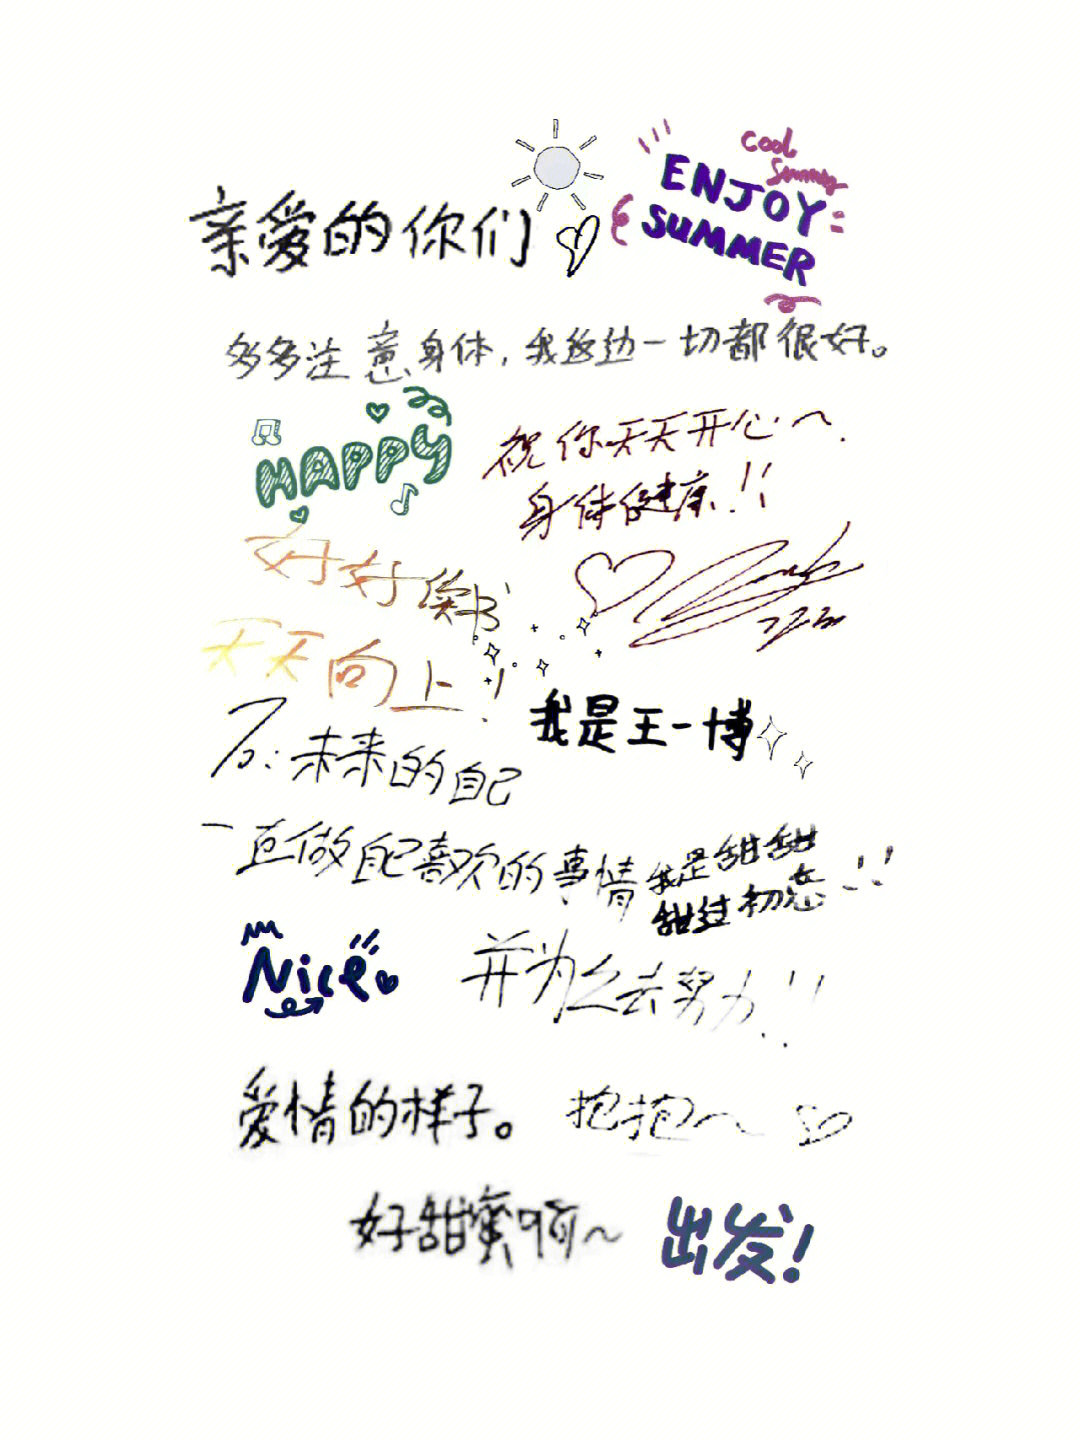 cool
summer
ENJOY
SUMMER
亲爱的你们
多多注意身体，我这边一切都很好。
HAPPY
祝你天天开心～
身体健康！！
好好读书
天天向上！
我是王一博
To：未来的自己
一直做自己喜欢的事情
我是甜甜
甜过初恋
Nice
并为之去努力！！
爱情的样子。
抱抱～
好甜蜜啊～
出发！